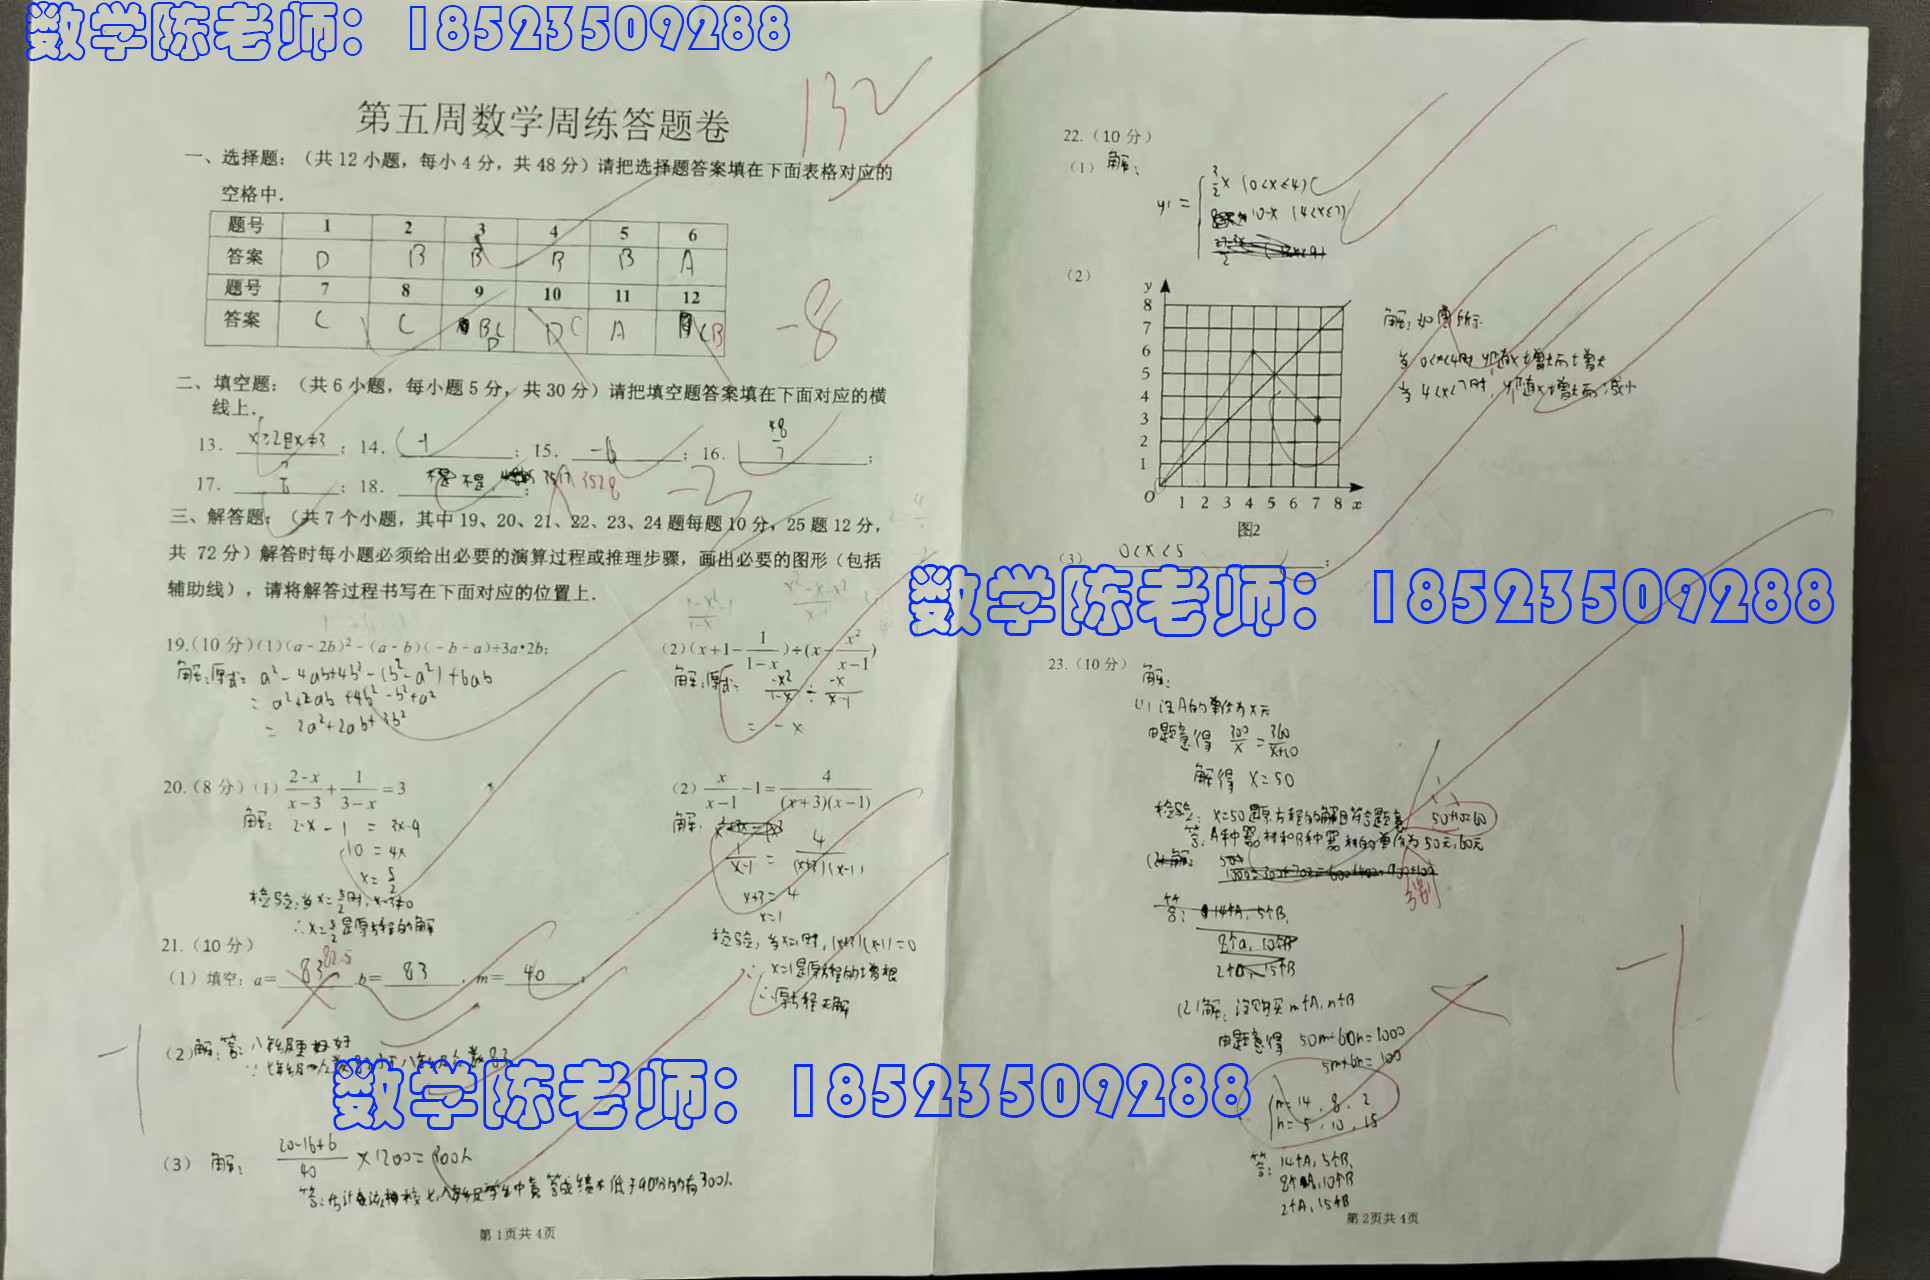 数学陈老师：18523509288
132
第五周数学周练答题卷
一、选择题：（共 12 小题，每小 4 分，共 48 分）请把选择题答案填在下面表格对应的
空格中．
题号 1 2 3 4 5 6
答案 D B B B B A
题号 7 8 9 10 11 12
答案 C C B C D D C A C B
-8
二、填空题：（共 6 小题，每小题 5 分，共 30 分）请把填空题答案填在下面对应的横
线上．
13. x≥2且x≠3 ；14. -1 ；15. -6 ；16. 48/7 ；
17. ；18. 不是 3517 3528 ；
三、解答题：（共 7 个小题，其中 19、20、21、22、23、24 题每题 10 分，25 题 12 分，
共 72 分）解答时每小题必须给出必要的演算过程或推理步骤，画出必要的图形（包括
辅助线），请将解答过程书写在下面对应的位置上．
19.(10 分)(1)(a－2b)²－(a－b)(－b－a)+3a•2b;
解:原式= a²-4ab+4b²-(b²-a²)+6ab
= a²+2ab+4b²-b²+a²
= 2a²+2ab+3b²
(2)(x+1－1/(1－x))÷(x－x²/(x－1))
解:原式= -x²/(1-x) ÷ -x/(x-1)
= -x
20.（8 分）(1) (2－x)/(x－3)+1/(3－x)=3
解: 2-x-1 = 3x-9
10 = 4x
x = 5/2
检验:当x=5/2时, x-3≠0
∴x=5/2是原方程的解
(2) x/(x－1)－1=4/((x+3)(x－1))
解:
1/(x-1) = 4/((x+3)(x-1))
x+3=4
x=1
检验,当x=1时,(x+3)(x-1)=0
∴ x=1是原方程的增根
∴原方程无解
21.（10 分）
（1）填空：a= 83 82.5 b= 83 ，m= 40 ；
-1
（2）解:答:八年级更好
数学陈老师：18523509288
（3）解: (20-16+6)/40 ×1200=300人
第 1页共 4页
22.（10 分）
（1）解:
y₁ = { 3/2x (0<x≤4)
10-x (4<x≤7)
（2）
y
8
7
6
5
4
3
2
1
O 1 2 3 4 5 6 7 8 x
图2
解:如图所示
当0<x<4时,y随x增大而增大
当4<x<7时,y随x增大而减小
（3） 0<x<5 ；
数学陈老师：18523509288
23.（10 分）解:
(1)设A的单价为x元
由题意得 300/x = 360/(x+10)
解得 x=50
检验: x=50是原方程的解且符合题意 50+10=60
答:A种器材和B种器材的单价为50元,60元
(2)解:设购买m个A,n个B
由题意得 50m+60n=1000
5m+6n=100
{ m=14, 8, 2
n=5, 10, 15
答:14个A,5个B,
8个A,10个B
2个A,15个B
-1
第 2页共 4页